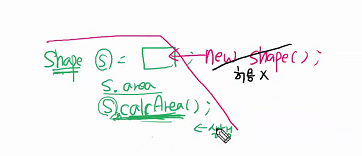 Shape ⓢ = ; new Shape();
허용 X
s.area
ⓢ.calcArea();